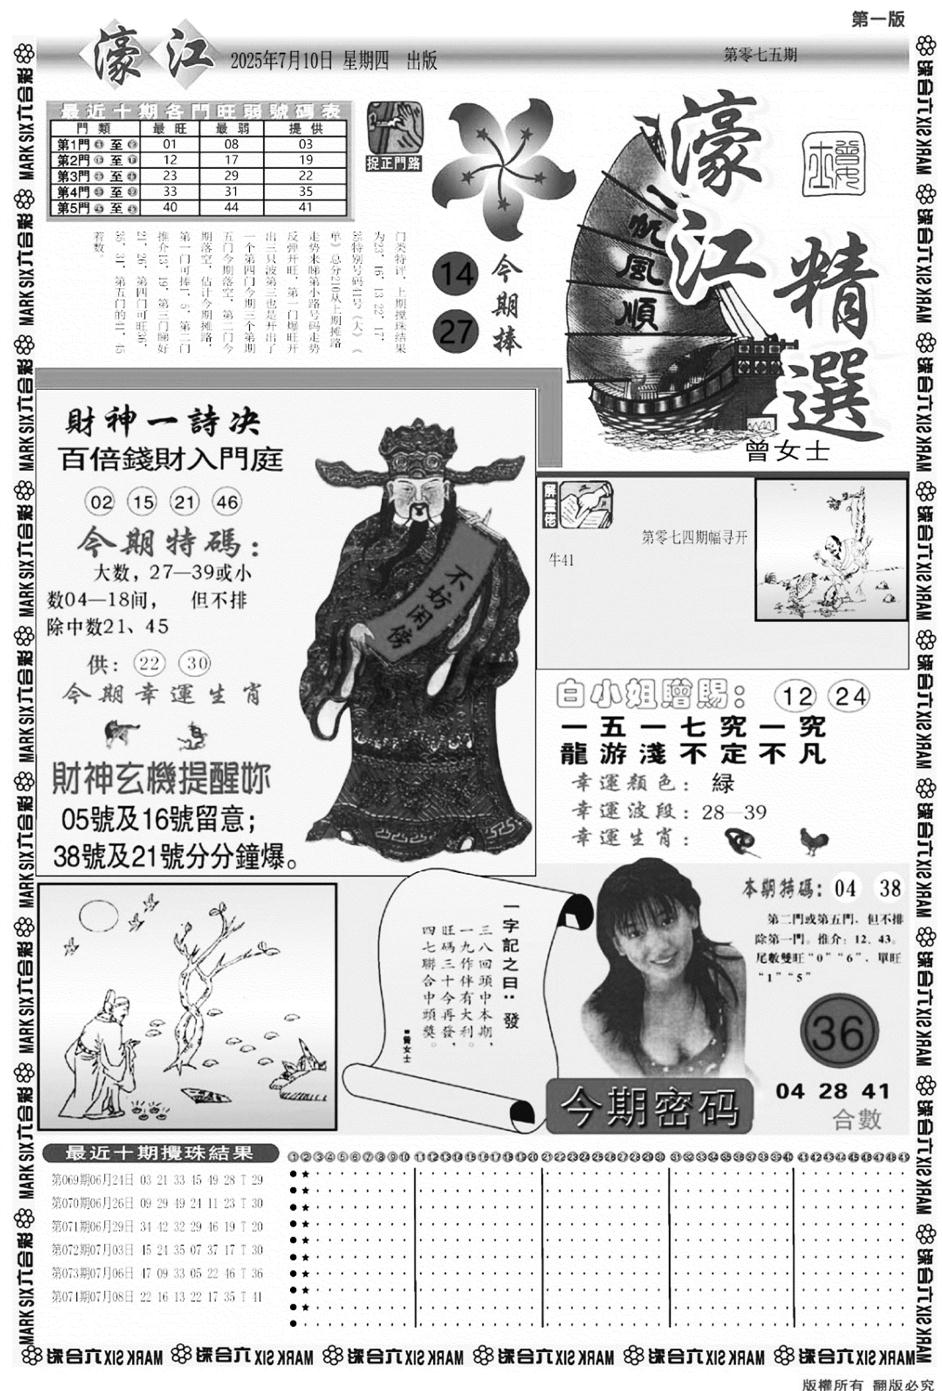 第一版
濠江
2025年7月10日 星期四 出版
第零七五期
最近十期各門旺弱號碼表
門類 最旺 最弱 提供
第1門 至 01 08 03
第2門 至 12 17 19
第3門 至 23 29 22
第4門 至 33 31 35
第5門 至 40 44 41
捉正門路
门类特评，上期搅珠结果
为23，16，13 22，17，
35特别号码41号《大》《
单》总分210从上期摊路
走势来睇第小路号码走势
反弹开旺，第一门爆旺开
出三只波第三也是开出了
一个第四门今期三个第期
五门今期落空，第二门今
期落空，估计今期摊路，
第一门可捧1，5，第二门
推介13，19，第三门睇好
21，26，第四门可旺36，
36，31，第五门的41，45
着数。
14
27
今期捧
一帆風順
濠江精選
曾女士
財神一詩决
百倍錢財入門庭
02 15 21 46
今期特碼：
大数，27—39或小
数04—18间， 但不排
除中数21、45
供：22 30
今期幸運生肖
財神玄機提醒妳
05號及16號留意；
38號及21號分分鐘爆。
不妨闲傍
解畫佬
第零七四期幅寻开
牛41
白小姐贈賜：12 24
一五一七究一究
龍游淺不定不凡
幸運顏色：緑
幸運波段：28—39
幸運生肖：
一字記之曰：發
三八回頭中本期，
一九作伴有大利。
旺碼三十今再發，
四七聯合中頭獎。
■曾女士
本期特碼：04 38
第二門或第五門，但不排
除第一門。推介：12、43。
尾數雙旺“0”“6”，單旺
“1”“5”
36
04 28 41
合數
今期密码
最近十期攪珠結果
①②③④⑤⑥⑦⑧⑨⑩⑪⑫⑬⑭⑮⑯⑰⑱⑲⑳㉑㉒㉓㉔㉕㉖㉗㉘㉙㉚㉛㉜㉝㉞㉟㊱㊲㊳㊴㊵㊶㊷㊸㊹㊺㊻㊼㊽㊾
第069期06月24日 03 21 33 45 49 28 T 29
第070期06月26日 09 29 49 24 11 23 T 30
第071期06月29日 34 42 32 29 46 19 T 20
第072期07月03日 45 24 35 07 37 17 T 30
第073期07月06日 47 09 33 05 22 46 T 36
第074期07月08日 22 16 13 22 17 35 T 41
MARK SIX六合彩
版權所有 翻版必究